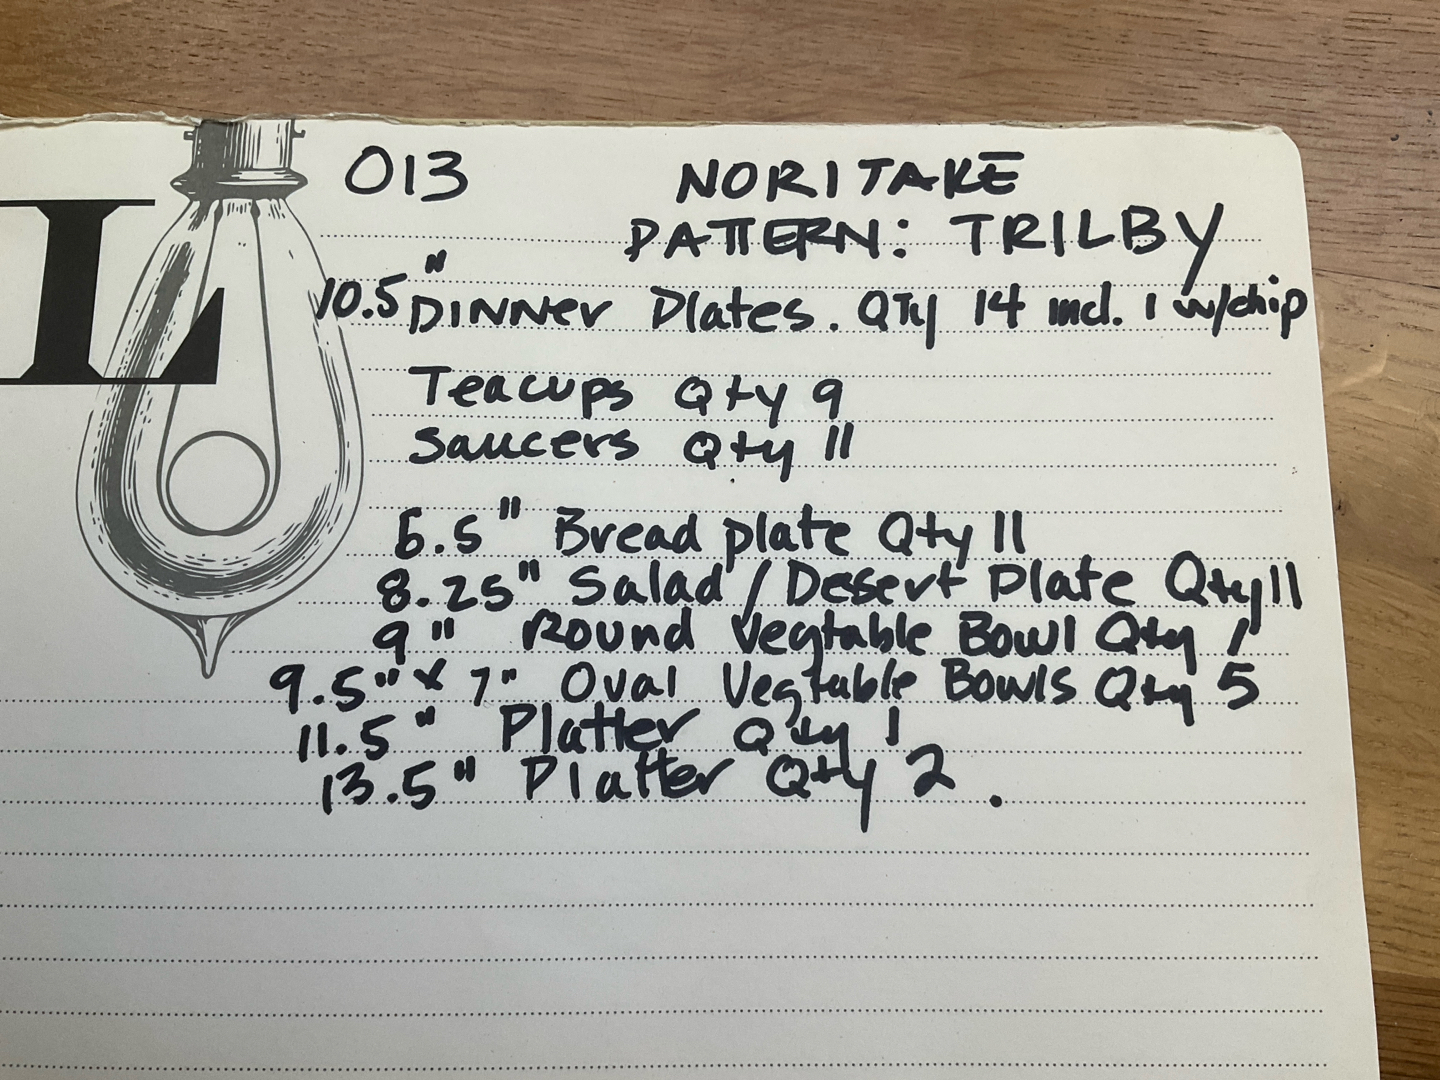 L
013 NORITAKE
PATTERN: TRILBY
10.5" DINNER Plates. QTy 14 incl. 1 w/chip
Teacups Qty 9
Saucers Qty 11
6.5" Bread plate Qty 11
8.25" Salad / Desert Plate Qty 11
9" Round Vegtable Bowl Qty 1
9.5" x 7" Oval Vegtable Bowls Qty 5
11.5" Platter Qty 1
13.5" Platter Qty 2.